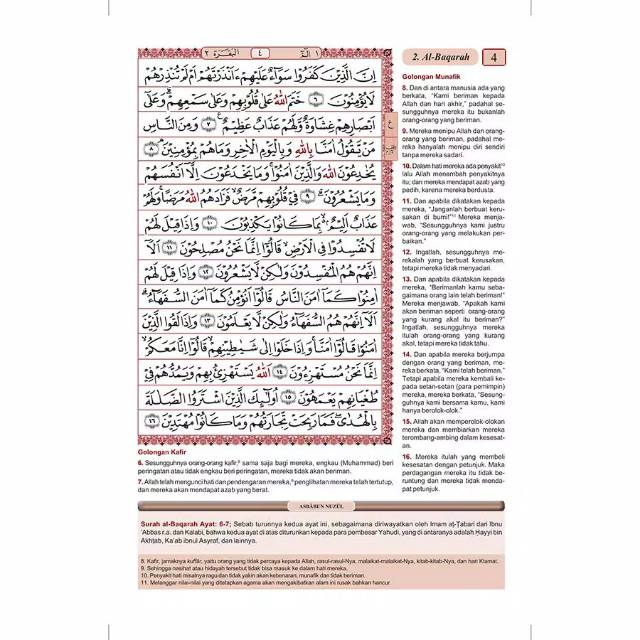 ٢ البقرة
٤
١ الم
2. Al-Baqarah
4
اِنَّ الَّذِيْنَ كَفَرُوْا سَوَاۤءٌ عَلَيْهِمْ ءَاَنْذَرْتَهُمْ اَمْ لَمْ تُنْذِرْهُمْ
لَا يُؤْمِنُوْنَ ۝٦ خَتَمَ اللّٰهُ عَلٰى قُلُوْبِهِمْ وَعَلٰى سَمْعِهِمْۗ وَعَلٰٓى
اَبْصَارِهِمْ غِشَاوَةٌ وَّلَهُمْ عَذَابٌ عَظِيْمٌ ۝٧ وَمِنَ النَّاسِ
مَنْ يَّقُوْلُ اٰمَنَّا بِاللّٰهِ وَبِالْيَوْمِ الْاٰخِرِ وَمَا هُمْ بِمُؤْمِنِيْنَ ۝٨
يُخٰدِعُوْنَ اللّٰهَ وَالَّذِيْنَ اٰمَنُوْا وَمَا يَخْدَعُوْنَ اِلَّآ اَنْفُسَهُمْ
وَمَا يَشْعُرُوْنَ ۝٩ فِيْ قُلُوْبِهِمْ مَّرَضٌ فَزَادَهُمُ اللّٰهُ مَرَضًا وَلَهُمْ
عَذَابٌ اَلِيْمٌ ۢ بِمَا كَانُوْا يَكْذِبُوْنَ ۝١٠ وَاِذَا قِيْلَ لَهُمْ
لَا تُفْسِدُوْا فِى الْاَرْضِۙ قَالُوْٓا اِنَّمَا نَحْنُ مُصْلِحُوْنَ ۝١١ اَلَآ
اِنَّهُمْ هُمُ الْمُفْسِدُوْنَ وَلٰكِنْ لَّا يَشْعُرُوْنَ ۝١٢ وَاِذَا قِيْلَ لَهُمْ
اٰمِنُوْا كَمَآ اٰمَنَ النَّاسُ قَالُوْٓا اَنُؤْمِنُ كَمَآ اٰمَنَ السُّفَهَاۤءُۗ
اَلَآ اِنَّهُمْ هُمُ السُّفَهَاۤءُ وَلٰكِنْ لَّا يَعْلَمُوْنَ ۝١٣ وَاِذَا لَقُوا الَّذِيْنَ
اٰمَنُوْا قَالُوْٓا اٰمَنَّاۚ وَاِذَا خَلَوْا اِلٰى شَيٰطِيْنِهِمْۙ قَالُوْٓا اِنَّا مَعَكُمْۙ
اِنَّمَا نَحْنُ مُسْتَهْزِءُوْنَ ۝١٤ اَللّٰهُ يَسْتَهْزِئُ بِهِمْ وَيَمُدُّهُمْ فِيْ
طُغْيَانِهِمْ يَعْمَهُوْنَ ۝١٥ اُولٰۤىِٕكَ الَّذِيْنَ اشْتَرَوُا الضَّلٰلَةَ
بِالْهُدٰىۖ فَمَا رَبِحَتْ تِّجَارَتُهُمْ وَمَا كَانُوْا مُهْتَدِيْنَ ۝١٦
Golongan Kafir
6. Sesungguhnya orang-orang kafir,⁸ sama saja bagi mereka, engkau (Muhammad) beri
peringatan atau tidak engkau beri peringatan, mereka tidak akan beriman.
7. Allah telah mengunci hati dan pendengaran mereka,⁹ penglihatan mereka telah tertutup,
dan mereka akan mendapat azab yang berat.
Golongan Munafik
8. Dan di antara manusia ada yang
berkata, "Kami beriman kepada
Allah dan hari akhir," padahal se-
sungguhnya mereka itu bukanlah
orang-orang yang beriman.
9. Mereka menipu Allah dan orang-
orang yang beriman, padahal me-
reka hanyalah menipu diri sendiri
tanpa mereka sadari.
10. Dalam hati mereka ada penyakit¹⁰
lalu Allah menambah penyakitnya
itu; dan mereka mendapat azab yang
pedih, karena mereka berdusta.
11. Dan apabila dikatakan kepada
mereka, "Janganlah berbuat keru-
sakan di bumi!"¹¹ Mereka menja-
wab, "Sesungguhnya kami justru
orang-orang yang melakukan per-
baikan."
12. Ingatlah, sesungguhnya me-
rekalah yang berbuat kerusakan,
tetapi mereka tidak menyadari.
13. Dan apabila dikatakan kepada
mereka, "Berimanlah kamu seba-
gaimana orang lain telah beriman!"
Mereka menjawab, "Apakah kami
akan beriman seperti orang-orang
yang kurang akal itu beriman?"
Ingatlah, sesungguhnya mereka
itulah orang-orang yang kurang
akal, tetapi mereka tidak tahu.
14. Dan apabila mereka berjumpa
dengan orang yang beriman, me-
reka berkata, "Kami telah beriman."
Tetapi apabila mereka kembali ke-
pada setan-setan (para pemimpin)
mereka, mereka berkata, "Sesung-
guhnya kami bersama kamu, kami
hanya berolok-olok."
15. Allah akan memperolok-olokan
mereka dan membiarkan mereka
terombang-ambing dalam kesesat-
an.
16. Mereka itulah yang membeli
kesesatan dengan petunjuk. Maka
perdagangan mereka itu tidak be-
runtung dan mereka tidak menda-
pat petunjuk.
ASBĀBUN NUZŪL
Surah al-Baqarah Ayat: 6-7; Sebab turunnya kedua ayat ini, sebagaimana diriwayatkan oleh Imam aṭ-Ṭabari dari Ibnu
'Abbas r.a. dan Kalabi, bahwa kedua ayat di atas diturunkan kepada para pembesar Yahudi, yang di antaranya adalah Ḥayyi bin
Akhṭab, Ka'ab ibnul Asyraf, dan lainnya.
8. Kafir, jamaknya kuffār, yaitu orang yang tidak percaya kepada Allah, rasul-rasul-Nya, malaikat-malaikat-Nya, kitab-kitab-Nya, dan hari Kiamat.
9. Sehingga nasihat atau hidayah tersebut tidak bisa masuk ke dalam hati mereka.
10. Penyakit hati misalnya ragu dan tidak yakin akan kebenaran, munafik dan tidak beriman.
11. Melanggar nilai-nilai yang ditetapkan agama akan mengakibatkan alam ini rusak bahkan hancur